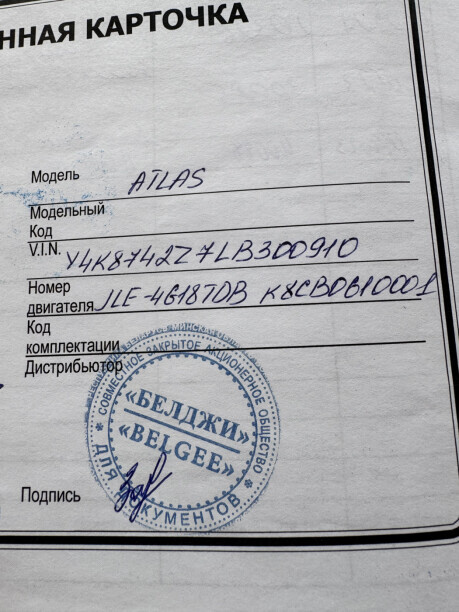 ННАЯ КАРТОЧКА
Модель ATLAS
Модельный
Код
V.I.N. Y4K8742Z7LB300910
Номер
двигателя JLE-4G18TDB K8CB0610001
Код
комплектации
Дистрибьютор
СОВМЕСТНОЕ ЗАКРЫТОЕ АКЦИОНЕРНОЕ ОБЩЕСТВО
«БЕЛДЖИ»
«BELGEE»
ДЛЯ ДОКУМЕНТОВ
Подпись